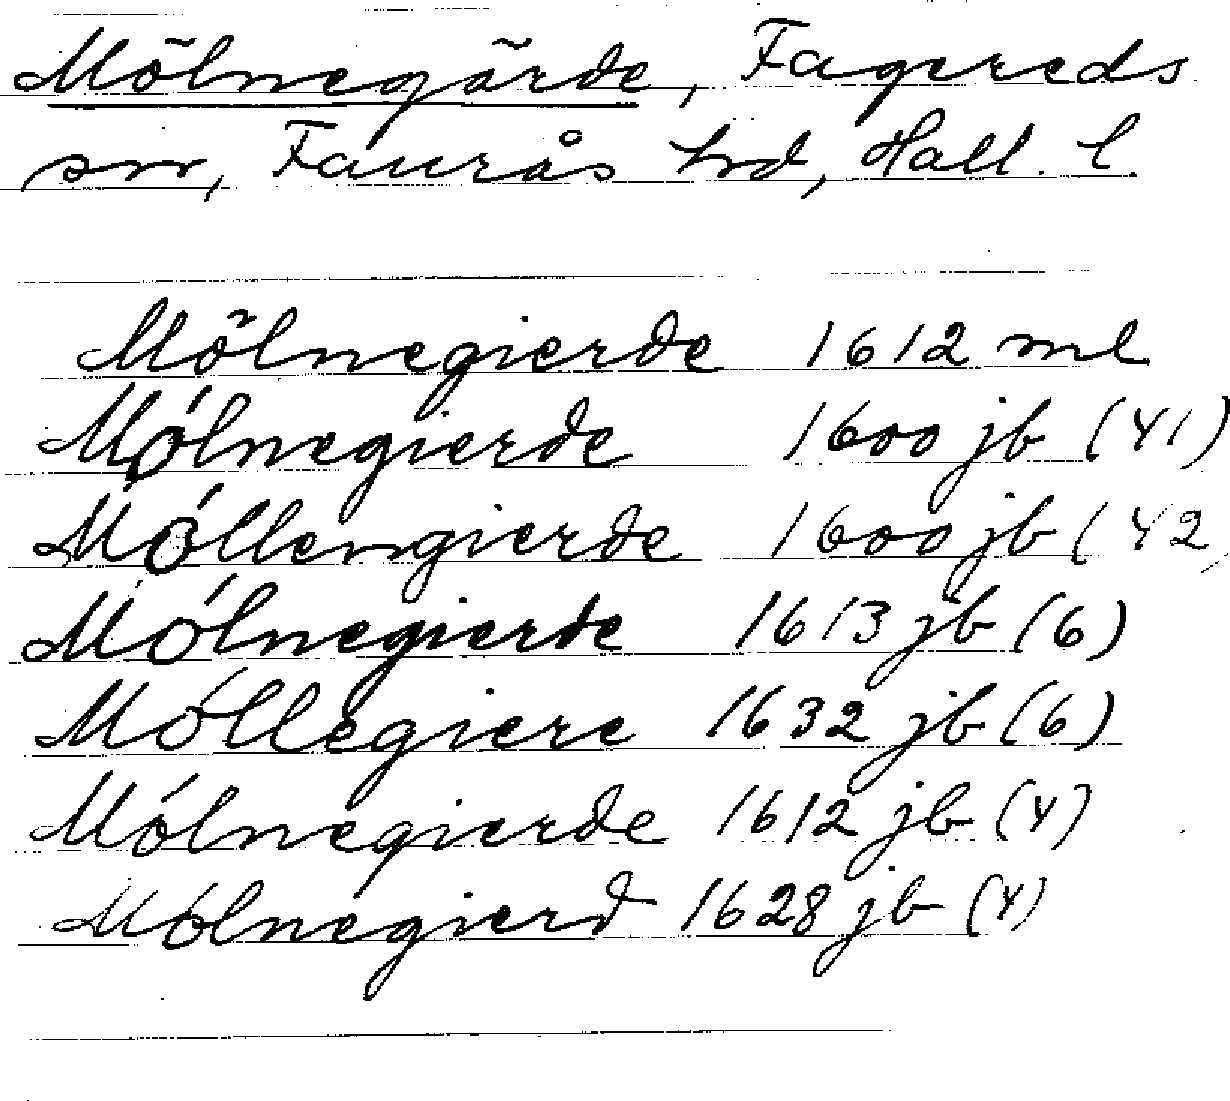 Mölnegärde, Fagereds
sn, Faurås hrd, Hall. l.
Mölnegierde 1612 ml
Mólnegierde 1600 jb (41)
Móllengierde 1600 jb (42)
Mólnegierde 1613 jb (6)
Móllegiere 1632 jb (6)
Mólnegierde 1612 jb (4)
Mólnegierd 1628 jb (4)